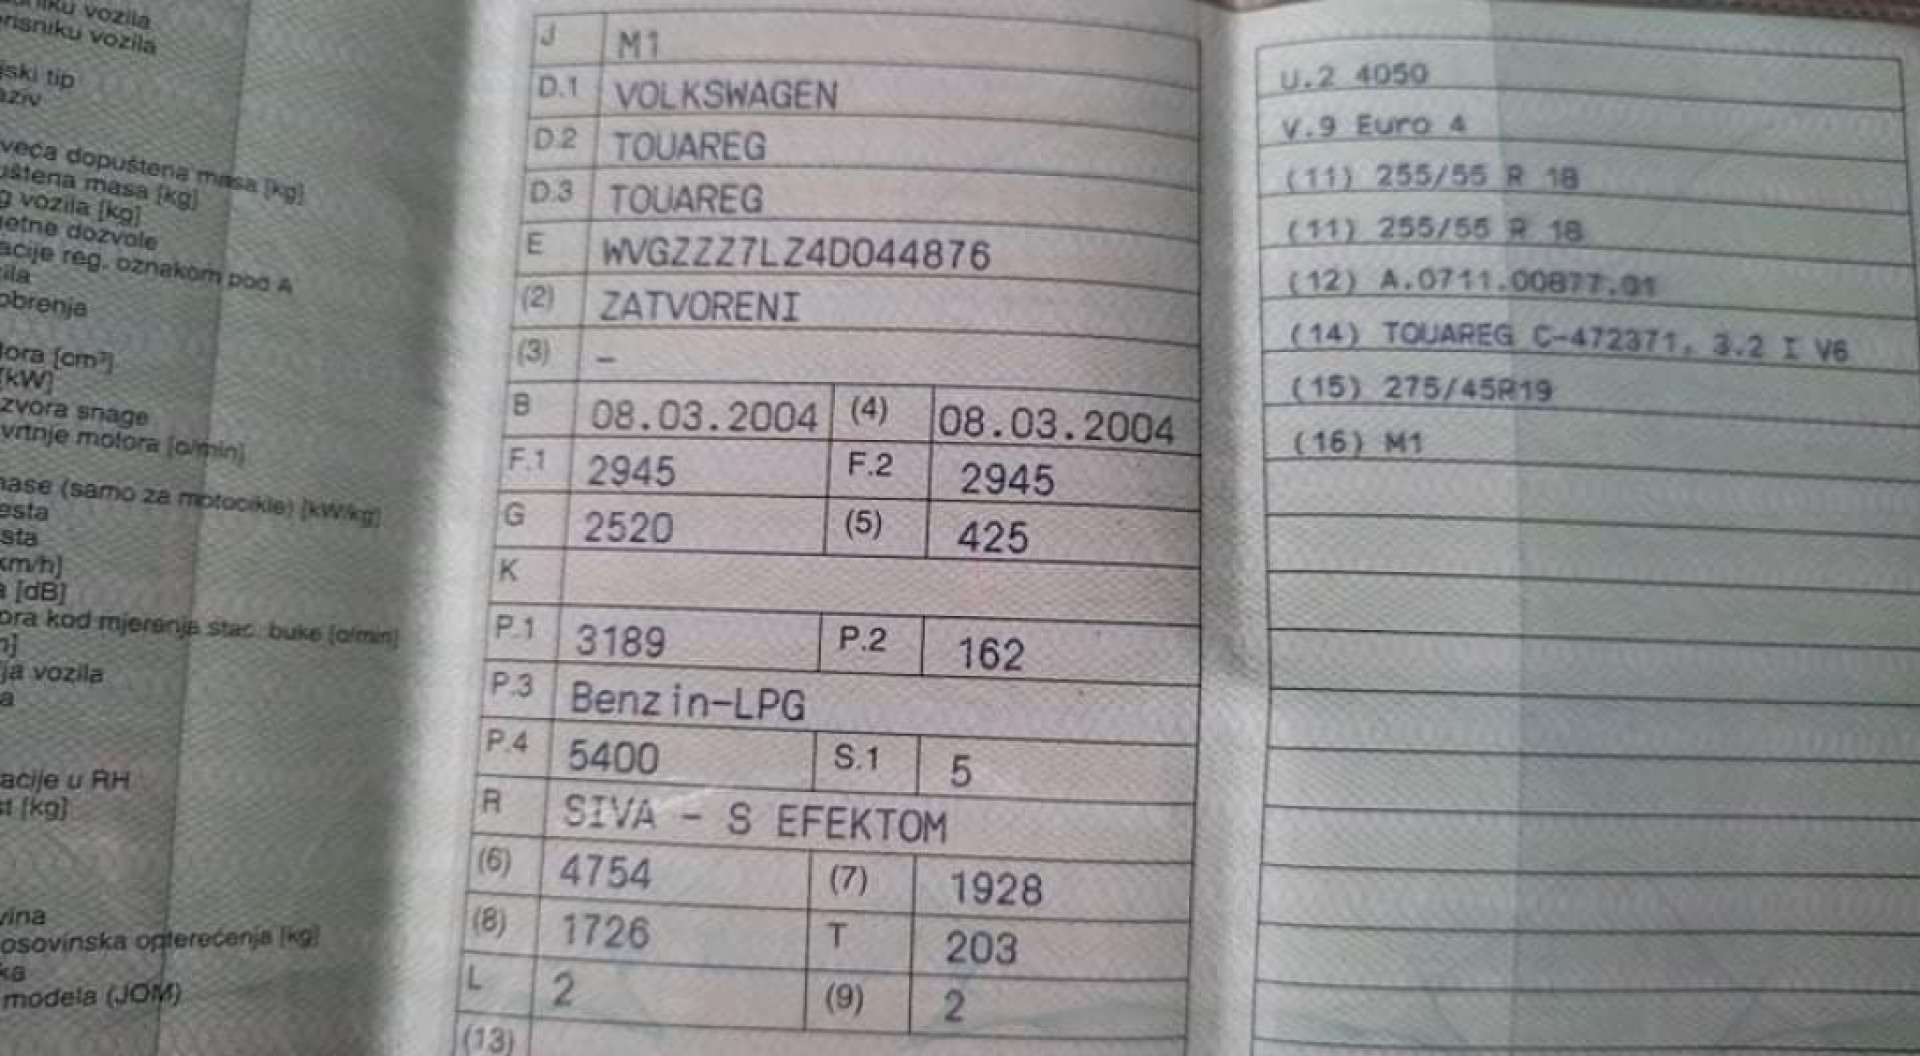 vozila
risniku vozila
ski tip
aziv
veća dopuštena masa [kg]
uštena masa [kg]
g vozila [kg]
etne dozvole
acije reg. oznakom pod A
ila
obrenja
tora [cm³]
[kW]
zvora snage
vrtnje motora [o/min]
mase (samo za motocikle) [kW/kg]
esta
sta
km/h]
a [dB]
ora kod mjerenja stac. buke [o/min]
ja vozila
a
acije u RH
st [kg]
vina
osovinska opterećenja [kg]
ka
modela (JOM)
J M1
D.1 VOLKSWAGEN
D.2 TOUAREG
D.3 TOUAREG
E WVGZZZ7LZ4D044876
(2) ZATVORENI
(3) –
B 08.03.2004 (4) 08.03.2004
F.1 2945 F.2 2945
G 2520 (5) 425
K
P.1 3189 P.2 162
P.3 Benzin-LPG
P.4 5400 S.1 5
R SIVA - S EFEKTOM
(6) 4754 (7) 1928
(8) 1726 T 203
L 2 (9) 2
(13)
U.2 4050
V.9 Euro 4
(11) 255/55 R 18
(11) 255/55 R 18
(12) A.0711.00877.01
(14) TOUAREG C-472371, 3.2 I V6
(15) 275/45R19
(16) M1